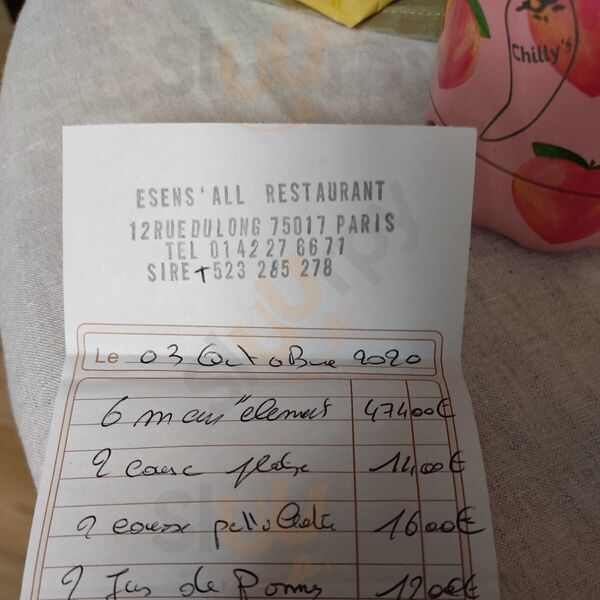 Chilly's
ESENS'ALL RESTAURANT
12RUEDULONG 75017 PARIS
TEL 0142276671
SIRET523 285 278
Le 03 Octobre 2020
6 menu "element 474.00€
2 1400€
2 1600€
2 Jus de Pomme 1200€